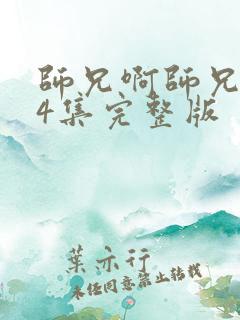 師兄啊師兄
4集完整版
葉亦行
未經同意禁止轉載